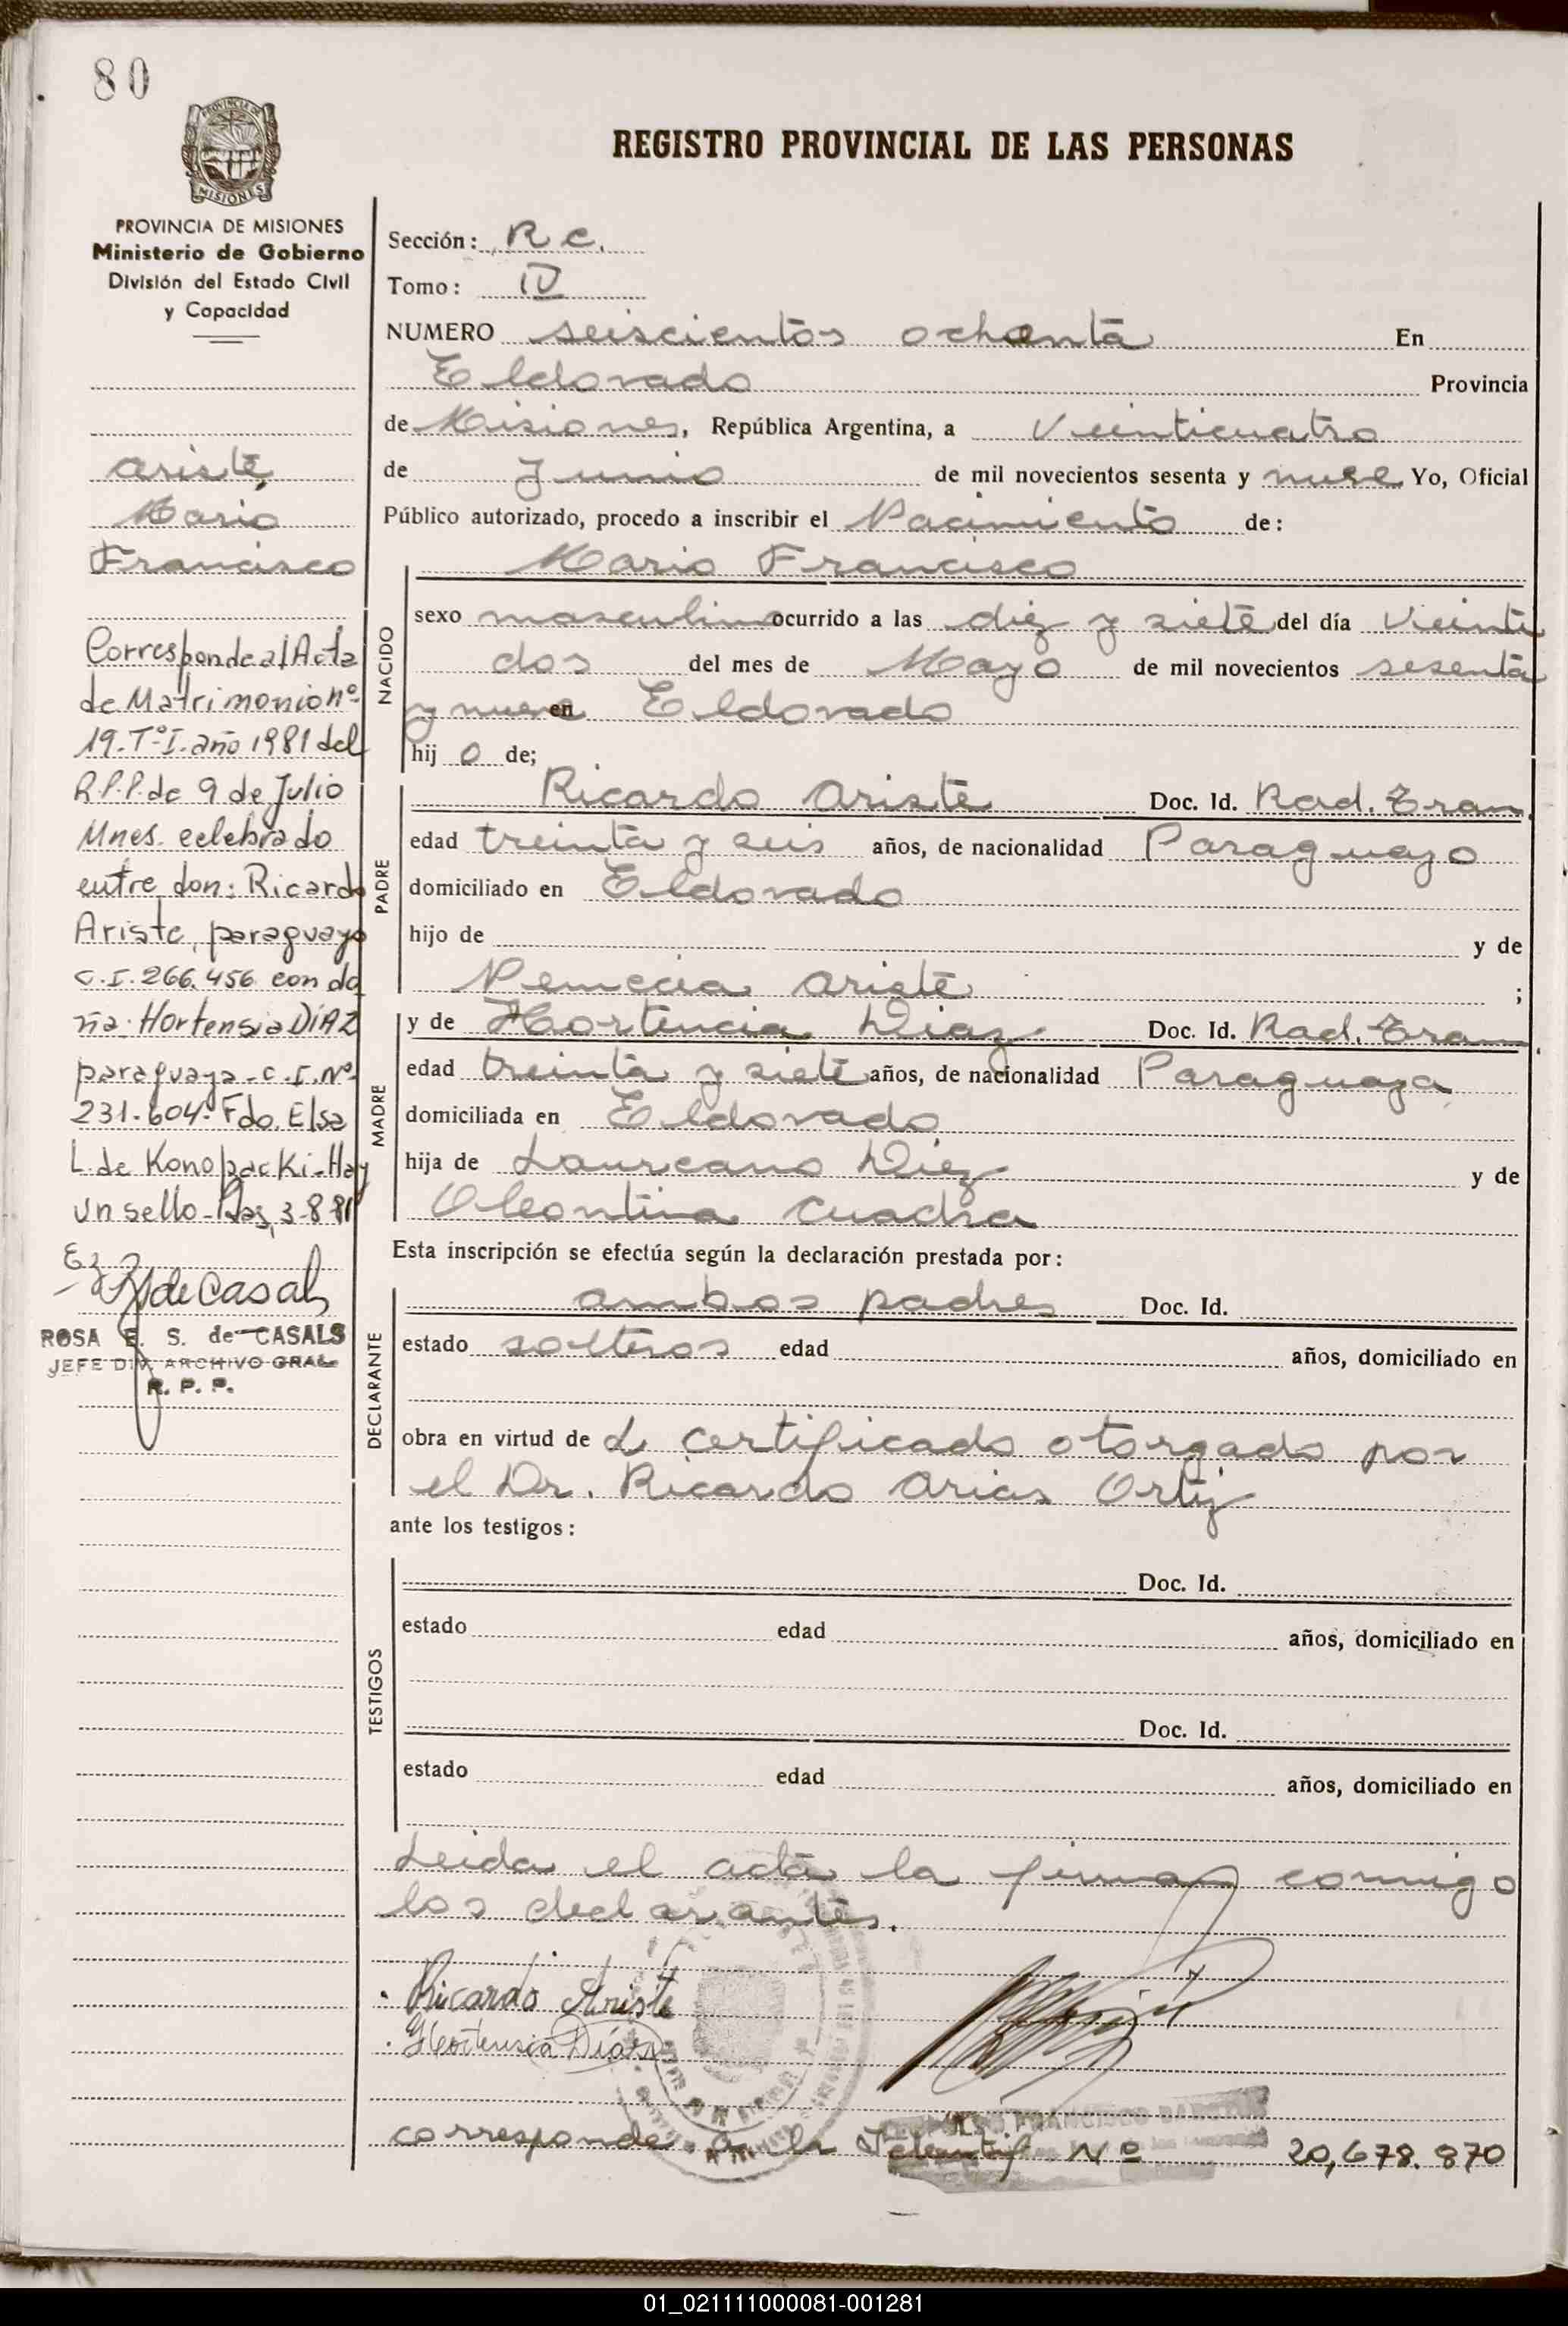 80
PROVINCIA DE
MISIONES
REGISTRO PROVINCIAL DE LAS PERSONAS
PROVINCIA DE MISIONES
Ministerio de Gobierno
División del Estado Civil
y Capacidad
Ariste,
Mario
Francisco
Corresponde al Acta
de Matrimonio nº
19-Tº I-año 1981 del
R.P.P. de 9 de Julio
Mnes. celebrado
entre don: Ricardo
Ariste, paraguayo
C.I. 266.456 con do
ña: Hortensia DÍAZ
paraguaya-C.I. Nº
231-604-Fdo. Elsa
L. de Konopacki-Hay
un sello-Pdas, 3-8-81
RdeCasals
ROSA E. S. de CASALS
JEFE DIV. ARCHIVO GRAL.
R. P. P.
Sección: R c.
Tomo: IV
NUMERO seiscientos ochenta En
Eldorado Provincia
de Misiones, República Argentina, a Veinticuatro
de Junio de mil novecientos sesenta y nueve Yo, Oficial
Público autorizado, procedo a inscribir el Nacimiento de:
Mario Francisco
NACIDO
sexo masculino ocurrido a las diez y siete del día Veinti
dos del mes de Mayo de mil novecientos sesenta
y nueve en Eldorado
hij o de;
PADRE
Ricardo Ariste Doc. Id. Rad. Tram.
edad treinta y seis años, de nacionalidad Paraguayo
domiciliado en Eldorado
hijo de y de
Nemecia Ariste ;
MADRE
y de Hortencia Diaz Doc. Id. Rad. Tram.
edad treinta y siete años, de nacionalidad Paraguaya
domiciliada en Eldorado
hija de Laureano Diez y de
Oleontina Cuadra
Esta inscripción se efectúa según la declaración prestada por:
DECLARANTE
ambos padres Doc. Id.
estado solteros edad años, domiciliado en
obra en virtud de L certificado otorgado por
el Dr. Ricardo Arias Ortiz
ante los testigos:
TESTIGOS
Doc. Id.
estado edad años, domiciliado en
Doc. Id.
estado edad años, domiciliado en
Leida el acta la firman conmigo
los declarantes.
Ricardo Ariste
Hortensia Díaz
FRANCISCO
corresponde a la Identif Nº 20,678.870
01_021111000081-001281